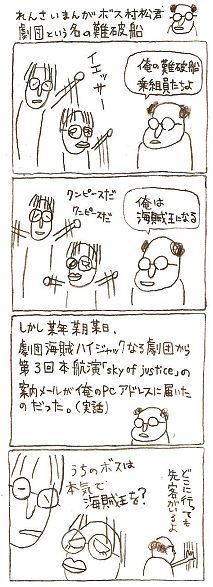 れんさいまんが ボス村松君
劇団という名の難破船
俺の難破船
乗組員たちよ
イエッサー
俺は
海賊王になる
ワンピースだ
ワンピースだ
しかし某年某月某日、
劇団海賊ハイジャックなる劇団から
第3回本航演「sky of justice」の
案内メールが俺のPCアドレスに届いた
のだった。(実話)
どこに行っても
先客がいるよ
うちのボスは
本気で
海賊王を?